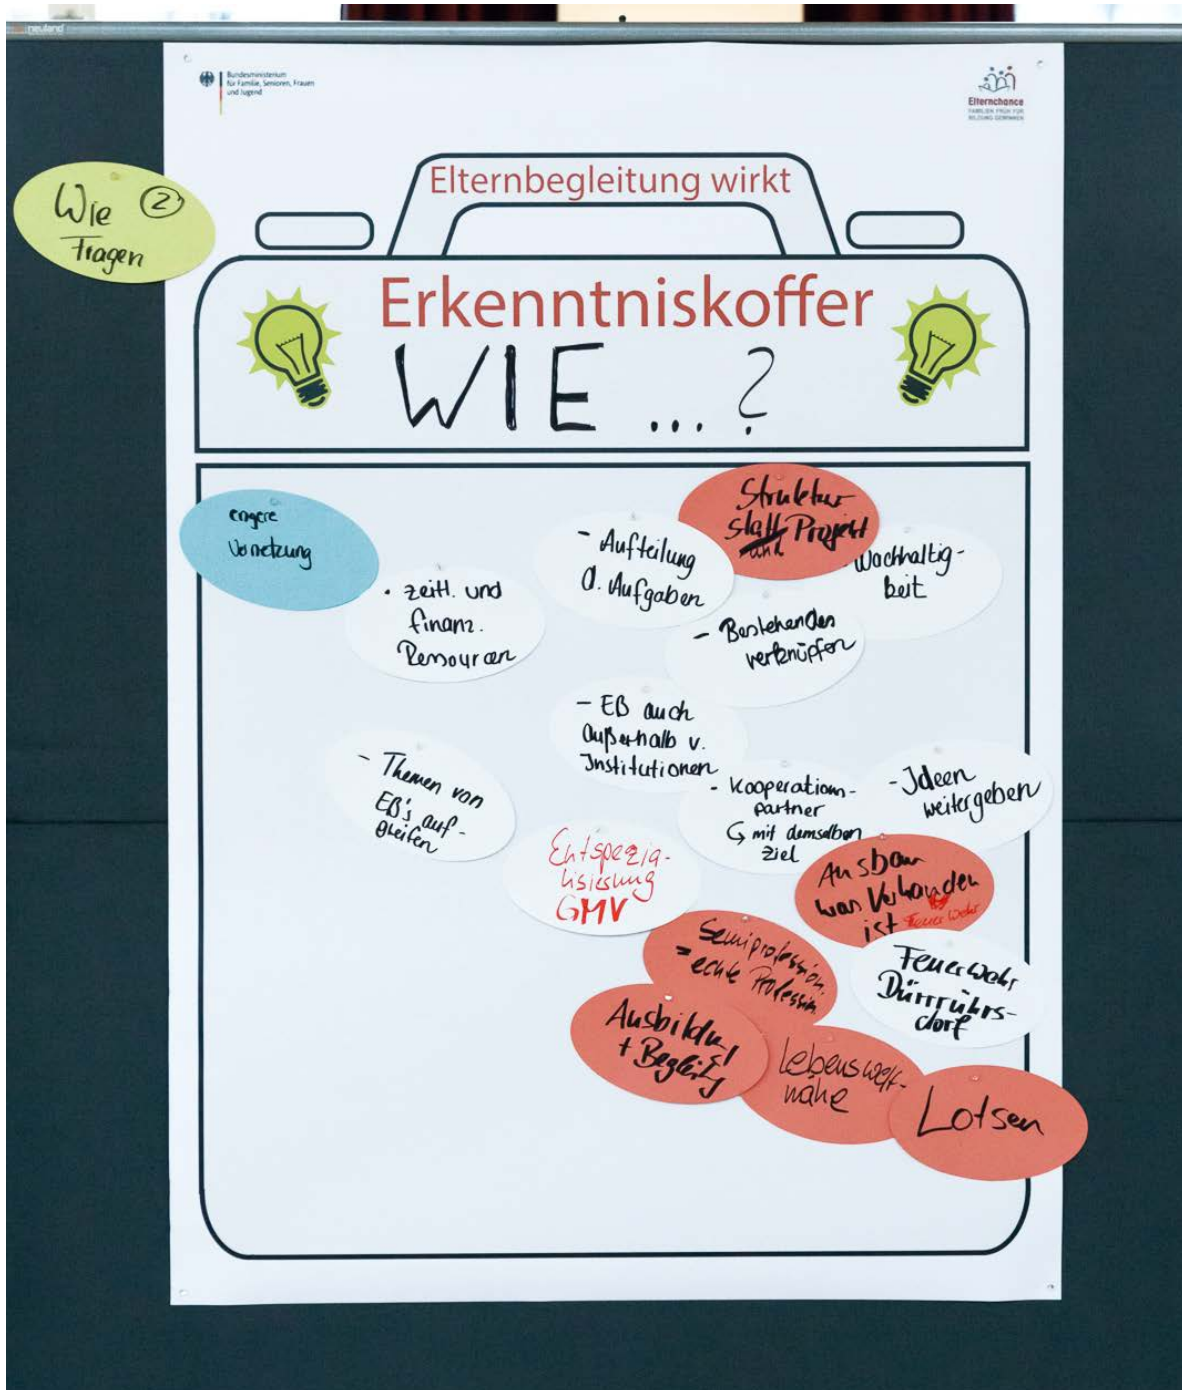 neuland
Bundesministerium
für Familie, Senioren, Frauen
und Jugend
Elternchance
FAMILIEN FRÜH FÜR
BILDUNG GEWINNEN
Wie ②
Fragen
Elternbegleitung wirkt
Erkenntniskoffer
WIE ... ?
engere
Vernetzung
• zeitl. und
finanz.
Ressourcen
- Aufteilung
d. Aufgaben
Struktur
statt Projekt
und
- Nachhaltig-
keit
- Bestehendes
verknüpfen
- EB auch
außerhalb v.
Institutionen
- Themen von
EB's auf-
greifen
- Kooperations-
partner
↳ mit demselben
Ziel
- Ideen
weitergeben
Entspezia-
lisierung
GMV
Ausbau
was Vorhanden
ist Feuerwehr
Semiprofession
= echte Profession
Feuerwehr
Dürrröhrs-
dorf
Ausbildung
+ Begleitg
Lebenswelt-
nähe
Lotsen